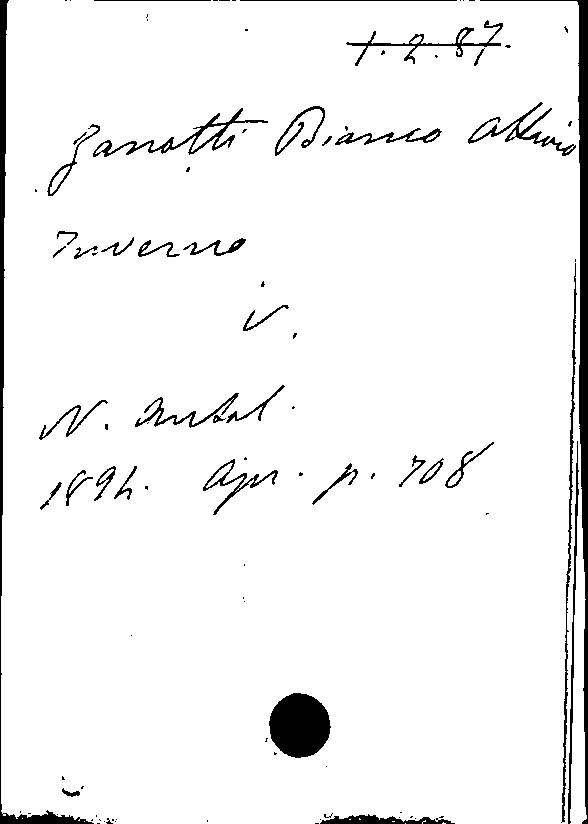 1.2.87.
Zanotti Bianco Ottavio
Inverno
v.
N. Antol.
1894. Apr. p. 708